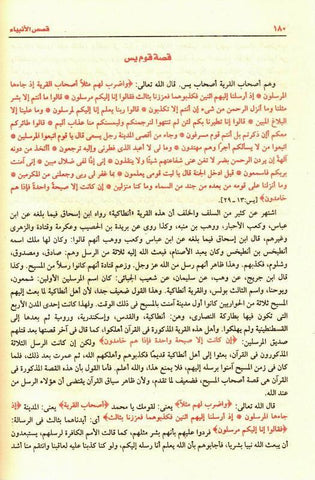 ١٨٠ قصص الأنبياء
قصة قوم يس
وهم أصحاب القرية أصحاب يس. قال الله تعالى: ﴿واضرب لهم مثلاً أصحاب القرية إذ جاءها
المرسلون * إذ أرسلنا إليهم اثنين فكذبوهما فعززنا بثالث فقالوا إنا إليكم مرسلون * قالوا ما أنتم إلا بشر
مثلنا وما أنزل الرحمن من شيء إن أنتم إلا تكذبون * قالوا ربنا يعلم إنا إليكم لمرسلون * وما علينا إلا
البلاغ المبين * قالوا إنا تطيرنا بكم لئن لم تنتهوا لنرجمنكم وليمسنكم منا عذاب أليم * قالوا طائركم
معكم أئن ذكرتم بل أنتم قوم مسرفون * وجاء من أقصى المدينة رجل يسعى قال يا قوم اتبعوا المرسلين *
اتبعوا من لا يسألكم أجراً وهم مهتدون * وما لي لا أعبد الذي فطرني وإليه ترجعون * أأتخذ من دونه
آلهة إن يردن الرحمن بضر لا تغن عني شفاعتهم شيئًا ولا ينقذون * إني إذًا لفي ضلال مبين * إني آمنت
بربكم فاسمعون * قيل ادخل الجنة قال يا ليت قومي يعلمون * بما غفر لي ربي وجعلني من المكرمين *
وما أنزلنا على قومه من بعده من جند من السماء وما كنا منزلين * إن كانت إلا صيحةً واحدةً فإذا هم
خامدون﴾ [يس: ١٣ - ٢٩].
اشتهر عن كثير من السلف والخلف أن هذه القرية «أنطاكية» رواه ابن إسحاق فيما بلغه عن ابن
عباس، وكعب الأحبار، ووهب بن منبه، وكذا روى عن بريدة بن الخصيب وعكرمة وقتادة والزهري
وغيرهم، قال ابن إسحاق فيما بلغه عن ابن عباس وكعب ووهب أنهم قالوا: وكان لها ملك اسمه
أنطيخس بن أنطيخس وكان يعبد الأصنام، فبعث الله إليه ثلاثة من الرسل وهم: صادق، ومصدوق،
وشلوم، فكذبهم. وهذا ظاهر أنهم رسل من الله عز وجل. وزعم قتادة أنهم كانوا رسلاً من المسيح. وكذا
قال ابن جريج، عن وهب، عن سليمان، عن شعيب الجبائي: كان اسم المرسلين الأولين: شمعون،
ويوحنا، واسم الثالث بولس، والقرية أنطاكية. وهذا القول ضعيف جداً، لأن أهل أنطاكية لما بعث إليهم
المسيح ثلاثة من الحواريين كانوا أول مدينة آمنت بالمسيح في ذلك الوقت. ولهذا كانت إحدى المدن الأربع
التي تكون فيها بطاركة النصارى، وهن: أنطاكية، والقدس، وإسكندرية، ورومية ثم بعدها إلى
القسطنطينية ولم يهلكوا. وأهل هذه القرية المذكورة في القرآن أهلكوا، كما قال في آخر قصتها بعد قتلهم
صديق المرسلين: ﴿إن كانت إلا صيحة واحدة فإذا هم خامدون﴾، ولكن إن كانت الرسل الثلاثة
المذكورون في القرآن، بعثوا إلى أهل أنطاكية قديمًا فكذبوهم وأهلكهم الله، ثم عمرت بعد ذلك، فلما
كان في زمن المسيح آمنوا برسله إليهم، فلا يمنع هذا، والله أعلم. فأما القول بأن هذه القصة المذكورة في
القرآن هي قصة أصحاب المسيح، فضعيف لما تقدم، ولأن ظاهر سياق القرآن يقتضي أن هؤلاء الرسل من
عند الله.
قال الله تعالى: ﴿واضرب لهم مثلاً﴾ يعني: لقومك يا محمد ﴿أصحاب القرية﴾ يعني: المدينة ﴿إذ
جاءها المرسلون * إذ أرسلنا إليهم اثنين فكذبوهما فعززنا بثالث﴾ أي: أيدناهما بثالث في الرسالة:
﴿فقالوا إنا إليكم مرسلون﴾ فردوا عليهم بأنهم بشر مثلهم، كما قالت الأمم الكافرة لرسلهم، يستبعدون
أن يبعث الله نبيًا بشريًا، فأجابوهم بأن الله يعلم أنا رسله إليكم، ولو كنا كذبنا عليه لعاقبنا وانتقم منا أشد